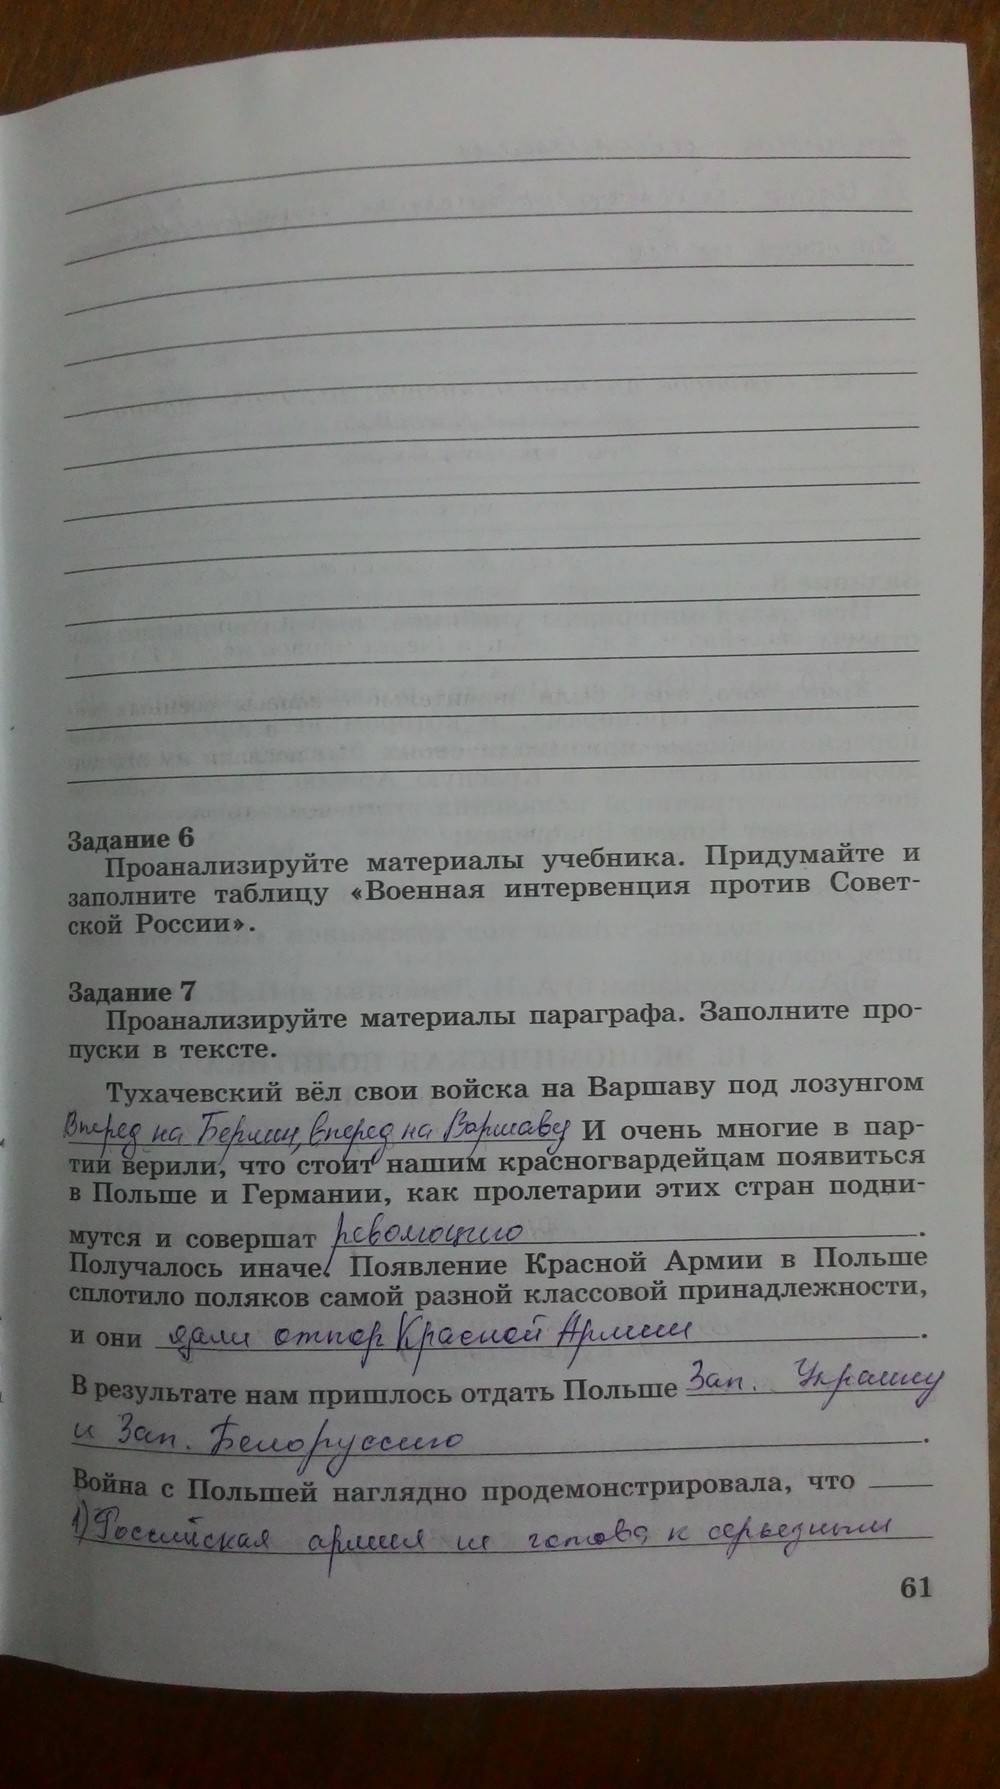 Задание 6
Проанализируйте материалы учебника. Придумайте и
заполните таблицу «Военная интервенция против Совет-
ской России».
Задание 7
Проанализируйте материалы параграфа. Заполните про-
пуски в тексте.
Тухачевский вёл свои войска на Варшаву под лозунгом
Вперед на Берлин, вперед на Варшаву И очень многие в пар-
тии верили, что стоит нашим красногвардейцам появиться
в Польше и Германии, как пролетарии этих стран подни-
мутся и совершат революцию.
Получалось иначе. Появление Красной Армии в Польше
сплотило поляков самой разной классовой принадлежности,
и они дали отпор Красной Армии.
В результате нам пришлось отдать Польше Зап. Украину
и Зап. Белоруссию.
Война с Польшей наглядно продемонстрировала, что
1) Российская армия не готова к серьезным
61